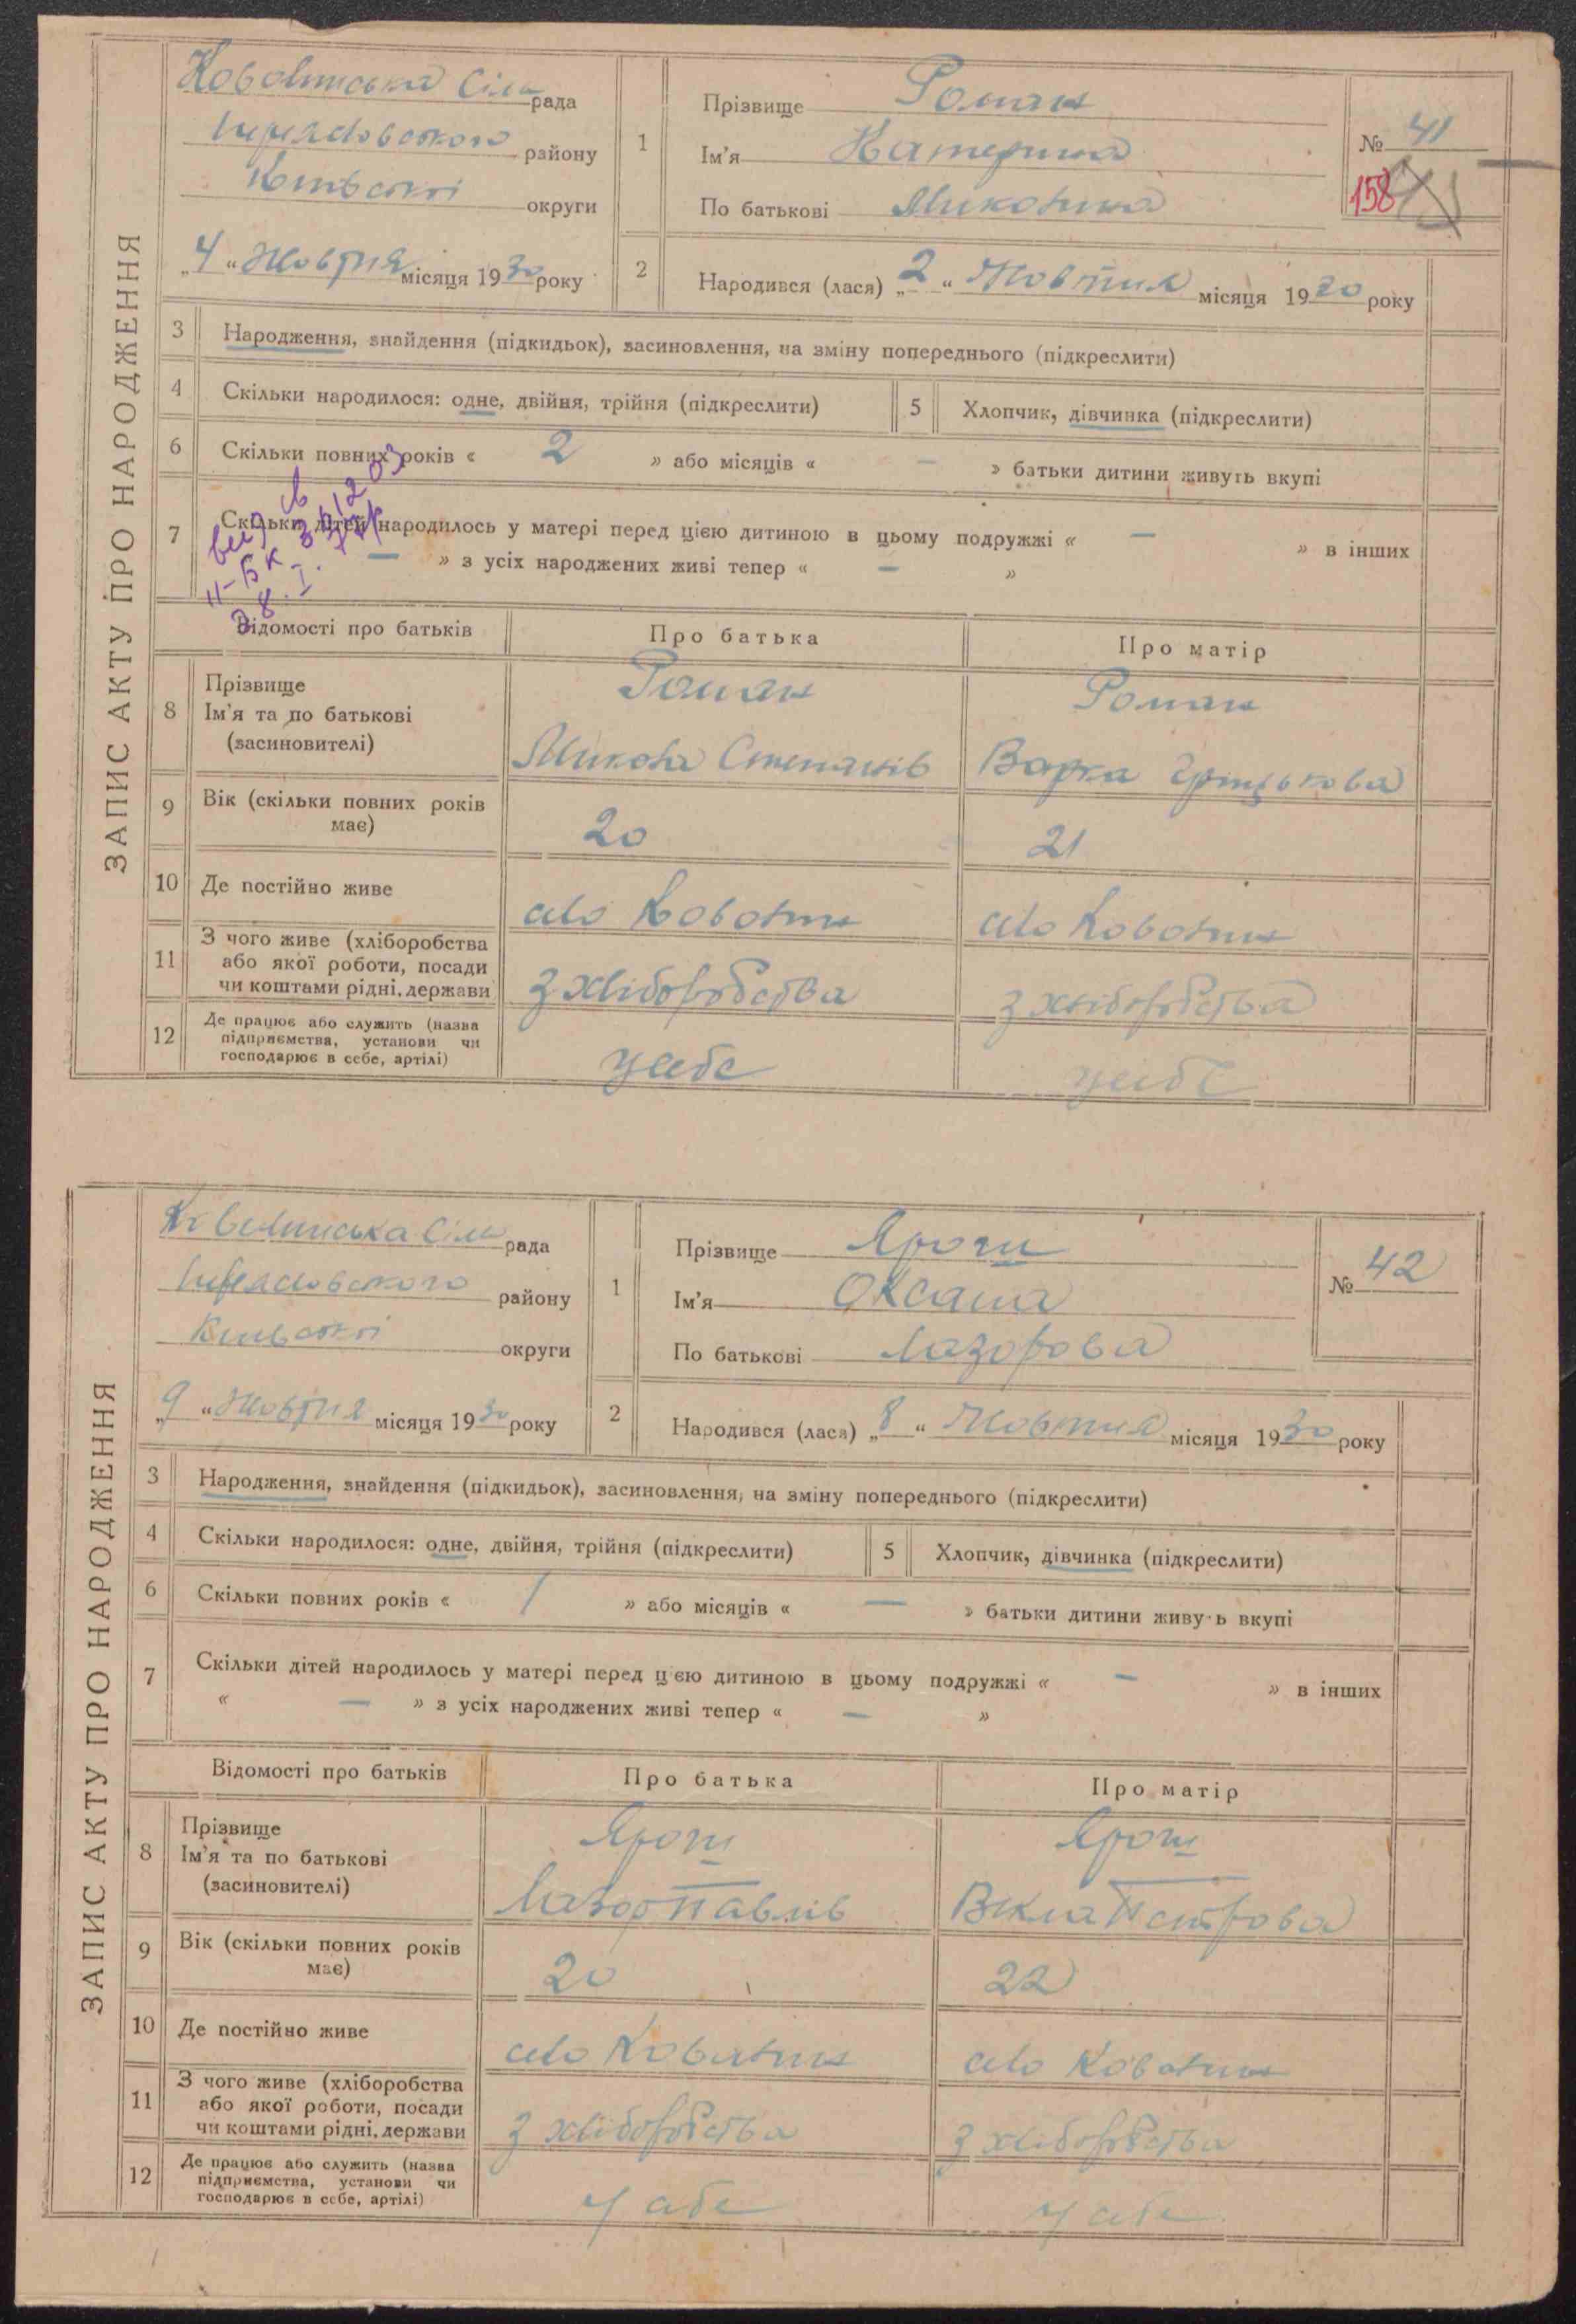 ЗАПИС АКТУ ПРО НАРОДЖЕННЯ
Ковалинська Сіль рада
Переяславського району
Київської округи
„4“ Жовтня місяця 1930 року
1
Прізвище Роман
Ім'я Катерина
По батькові Миколина
№ 41
158
2
Народився (лася) „2“ Жовтня місяця 1930 року
3 Народження, знайдення (підкидьок), засиновлення, на зміну попереднього (підкреслити)
4 Скільки народилося: одне, двійня, трійня (підкреслити)
5 Хлопчик, дівчинка (підкреслити)
6 Скільки повних років « 2 » або місяців « — » батьки дитини живуть вкупі
7 Скільки дітей народилось у матері перед цією дитиною в цьому подружжі « — » в інших
— » з усіх народжених живі тепер « — »
Відомості про батьків Про батька Про матір
8 Прізвище
Ім'я та по батькові
(засиновителі)
Роман
Микола Степанів
Роман
Варка Грицькова
9 Вік (скільки повних років має) 20 21
10 Де постійно живе село Ковалин село Ковалин
11 З чого живе (хліборобства
або якої роботи, посади
чи коштами рідні, держави
з хліборобства з хліборобства
12 Де працює або служить (назва
підприємства, установи чи
господарює в себе, артілі)
у себе у себе
ЗАПИС АКТУ ПРО НАРОДЖЕННЯ
Ковалинська Сіль рада
Переяславського району
Київської округи
„9“ Жовтня місяця 1930 року
1
Прізвище Ярош
Ім'я Оксана
По батькові Лазорова
№ 42
2
Народився (лася) „8“ Жовтня місяця 1930 року
3 Народження, знайдення (підкидьок), засиновлення, на зміну попереднього (підкреслити)
4 Скільки народилося: одне, двійня, трійня (підкреслити)
5 Хлопчик, дівчинка (підкреслити)
6 Скільки повних років « 1 » або місяців « — » батьки дитини живу ь вкупі
7 Скільки дітей народилось у матері перед ц єю дитиною в цьому подружжі « — » в інших
« — » з усіх народжених живі тепер « — »
Відомості про батьків Про батька Про матір
8 Прізвище
Ім'я та по батькові
(засиновителі)
Ярош
Лазор Павлів
Ярош
Векла Петрова
9 Вік (скільки повних років має) 20 22
10 Де постійно живе село Ковалин село Ковалин
11 З чого живе (хліборобства
або якої роботи, посади
чи коштами рідні, держави
з хліборобства з хліборобства
12 Де працює або служить (назва
підприємства, установи чи
господарює в себе, артілі)
у себе у себе